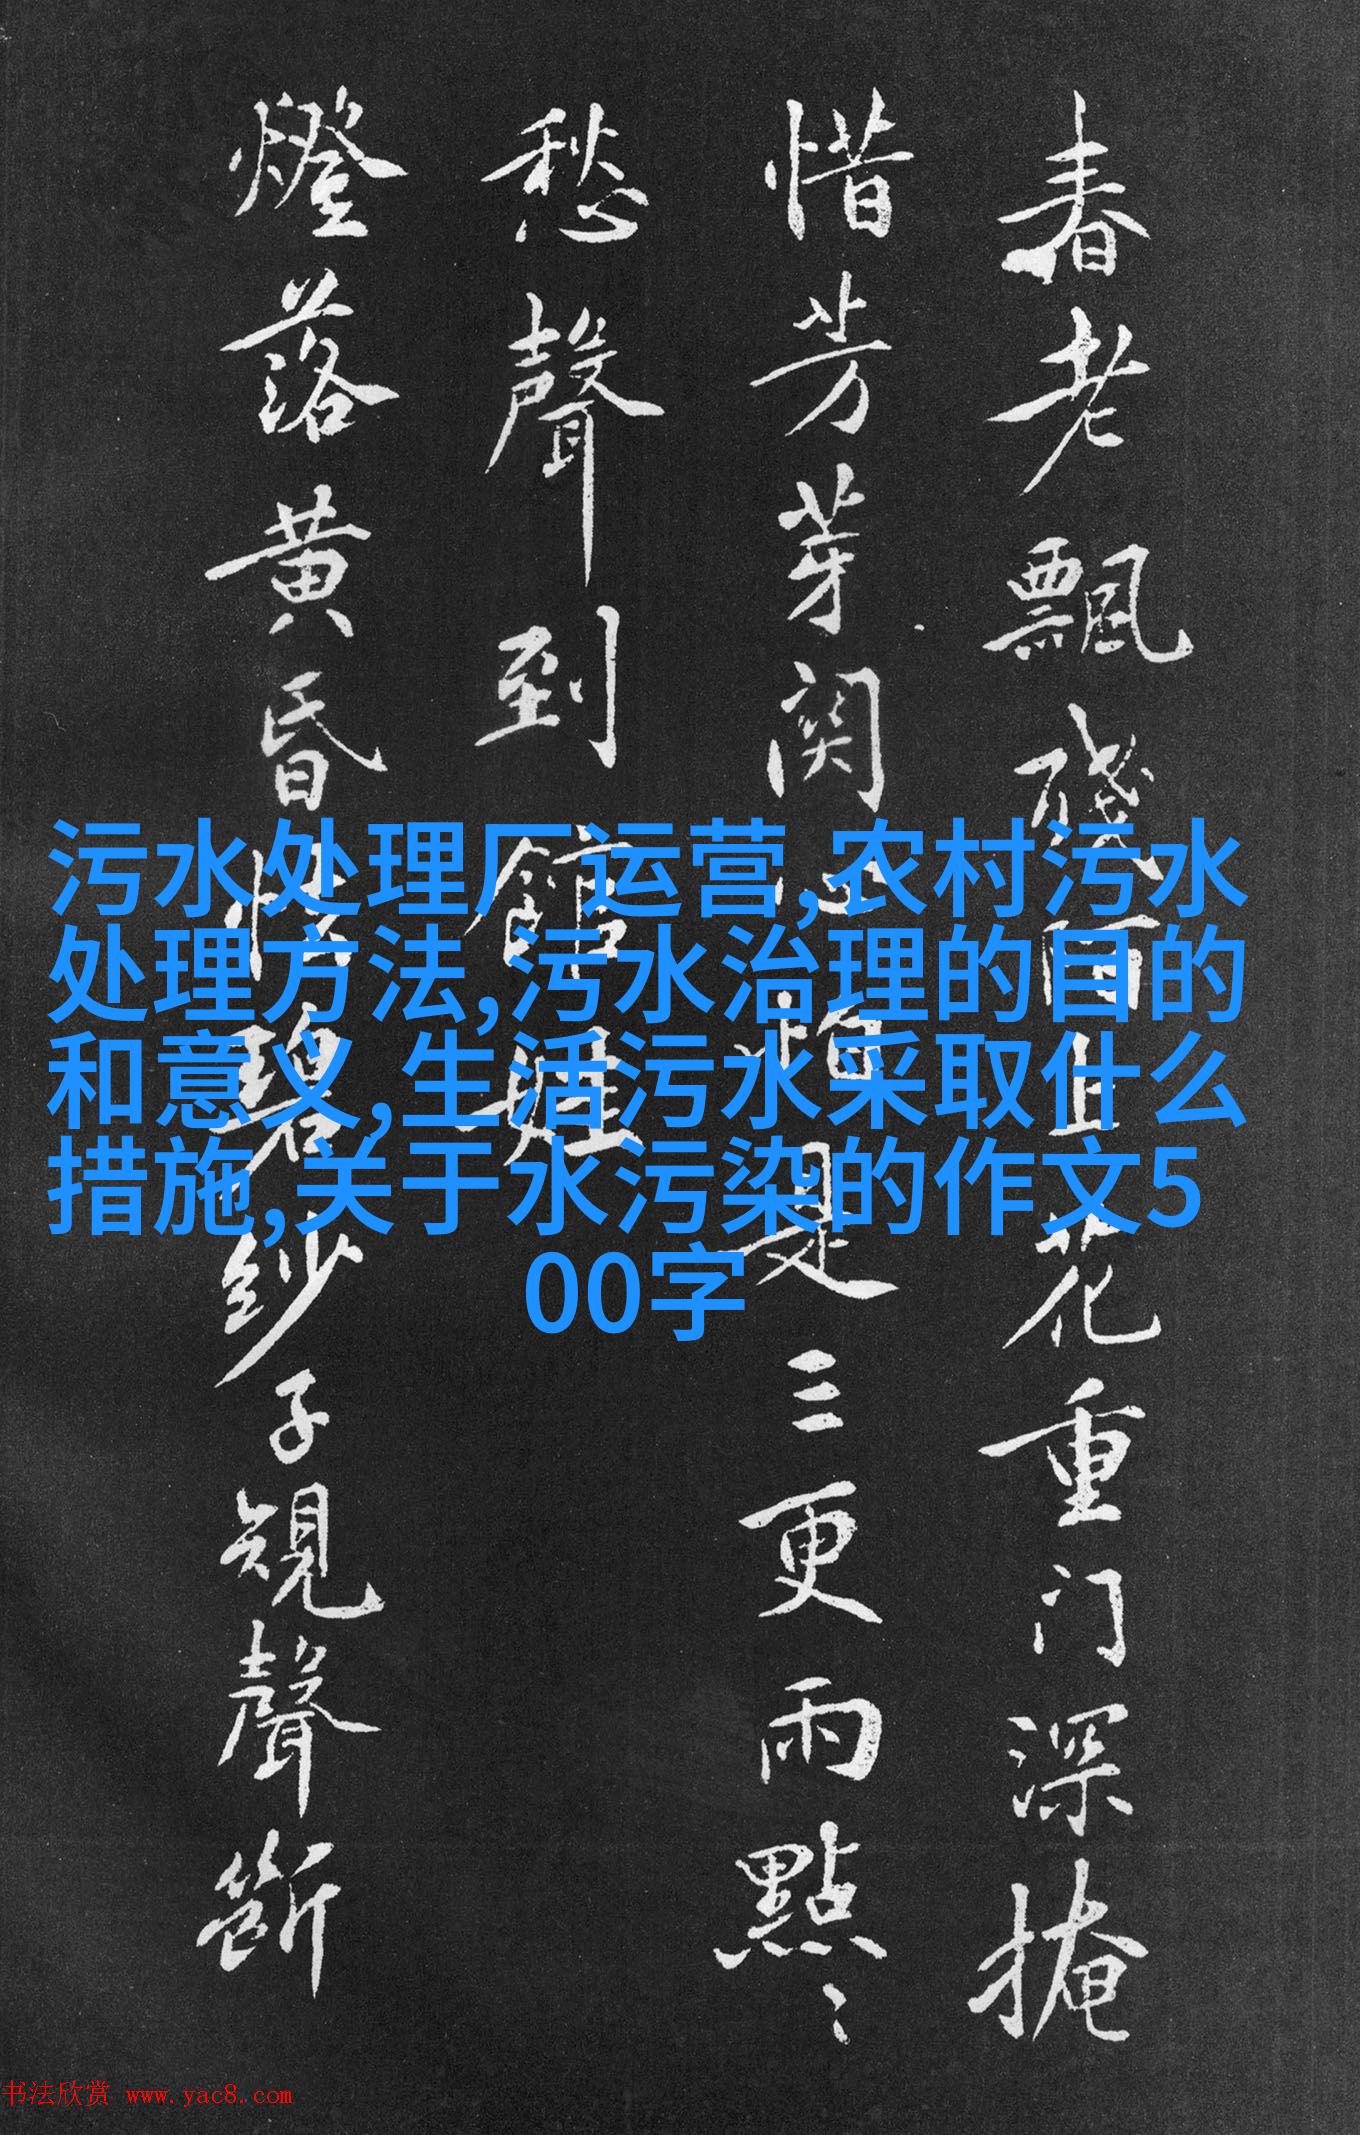 春老飄殘酒且花重门深掩
惜芳芽関心怕是三更雨點〻
愁聲到館娃
燈落黄昏怯碧纱子規聲斷
污水处理厂运营,农村污水
处理方法,污水治理的目的
和意义,生活污水采取什么
措施,关于水污染的作文5
00字
书法欣赏 www.yac8.com